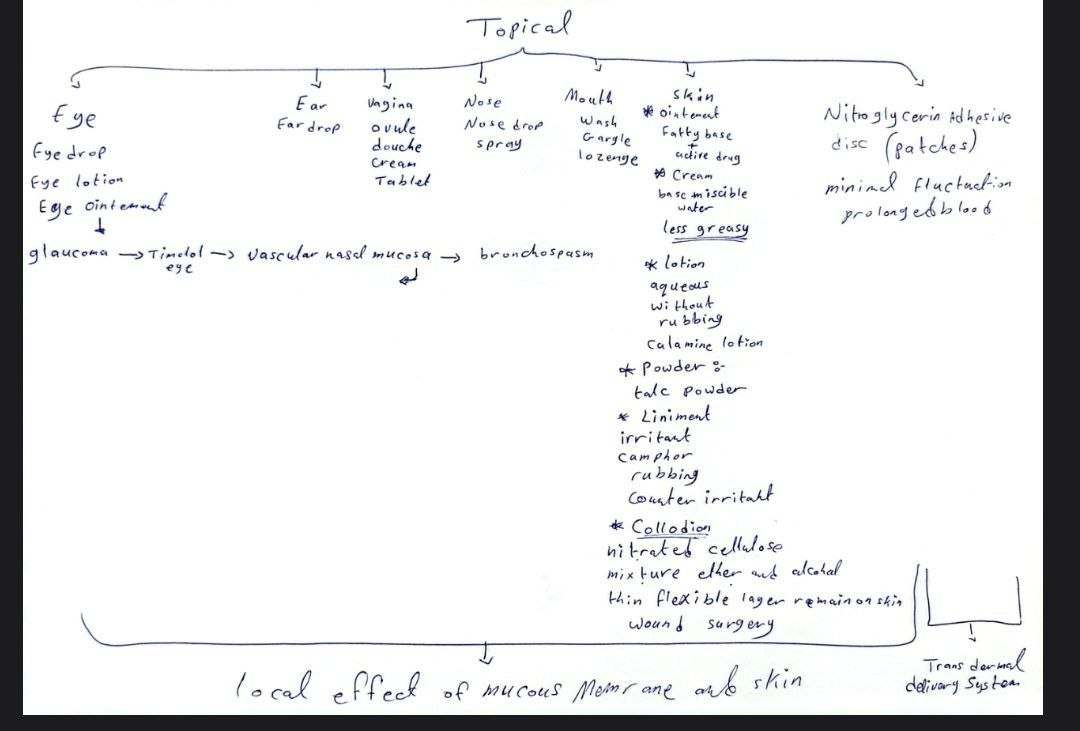 Topical
Eye
Eye drop
Eye lotion
Eye ointement
glaucoma → Timolol eye → Vascular nasal mucosa → bronchospasm
Ear
Ear drop
Vagina
ovule
douche
Cream
Tablet
Nose
Nose drop
spray
Mouth
Wash
Gargle
lozenge
skin
* ointement
Fatty base
+
active drug
* Cream
base miscible
water
less greasy
* lotion
aqueous
without
rubbing
Calamine lotion
* Powder :-
talc powder
* Liniment
irritant
camphor
rubbing
Counter irritant
* Collodion
nitrated cellulose
mixture ether and alcohol
thin flexible layer remain on skin
wound surgery
Nitroglycerin Adhesive
disc (patches)
minimal fluctuation
prolonged blood
local effect of mucous Memrane and skin
Trans dermal
delivary System